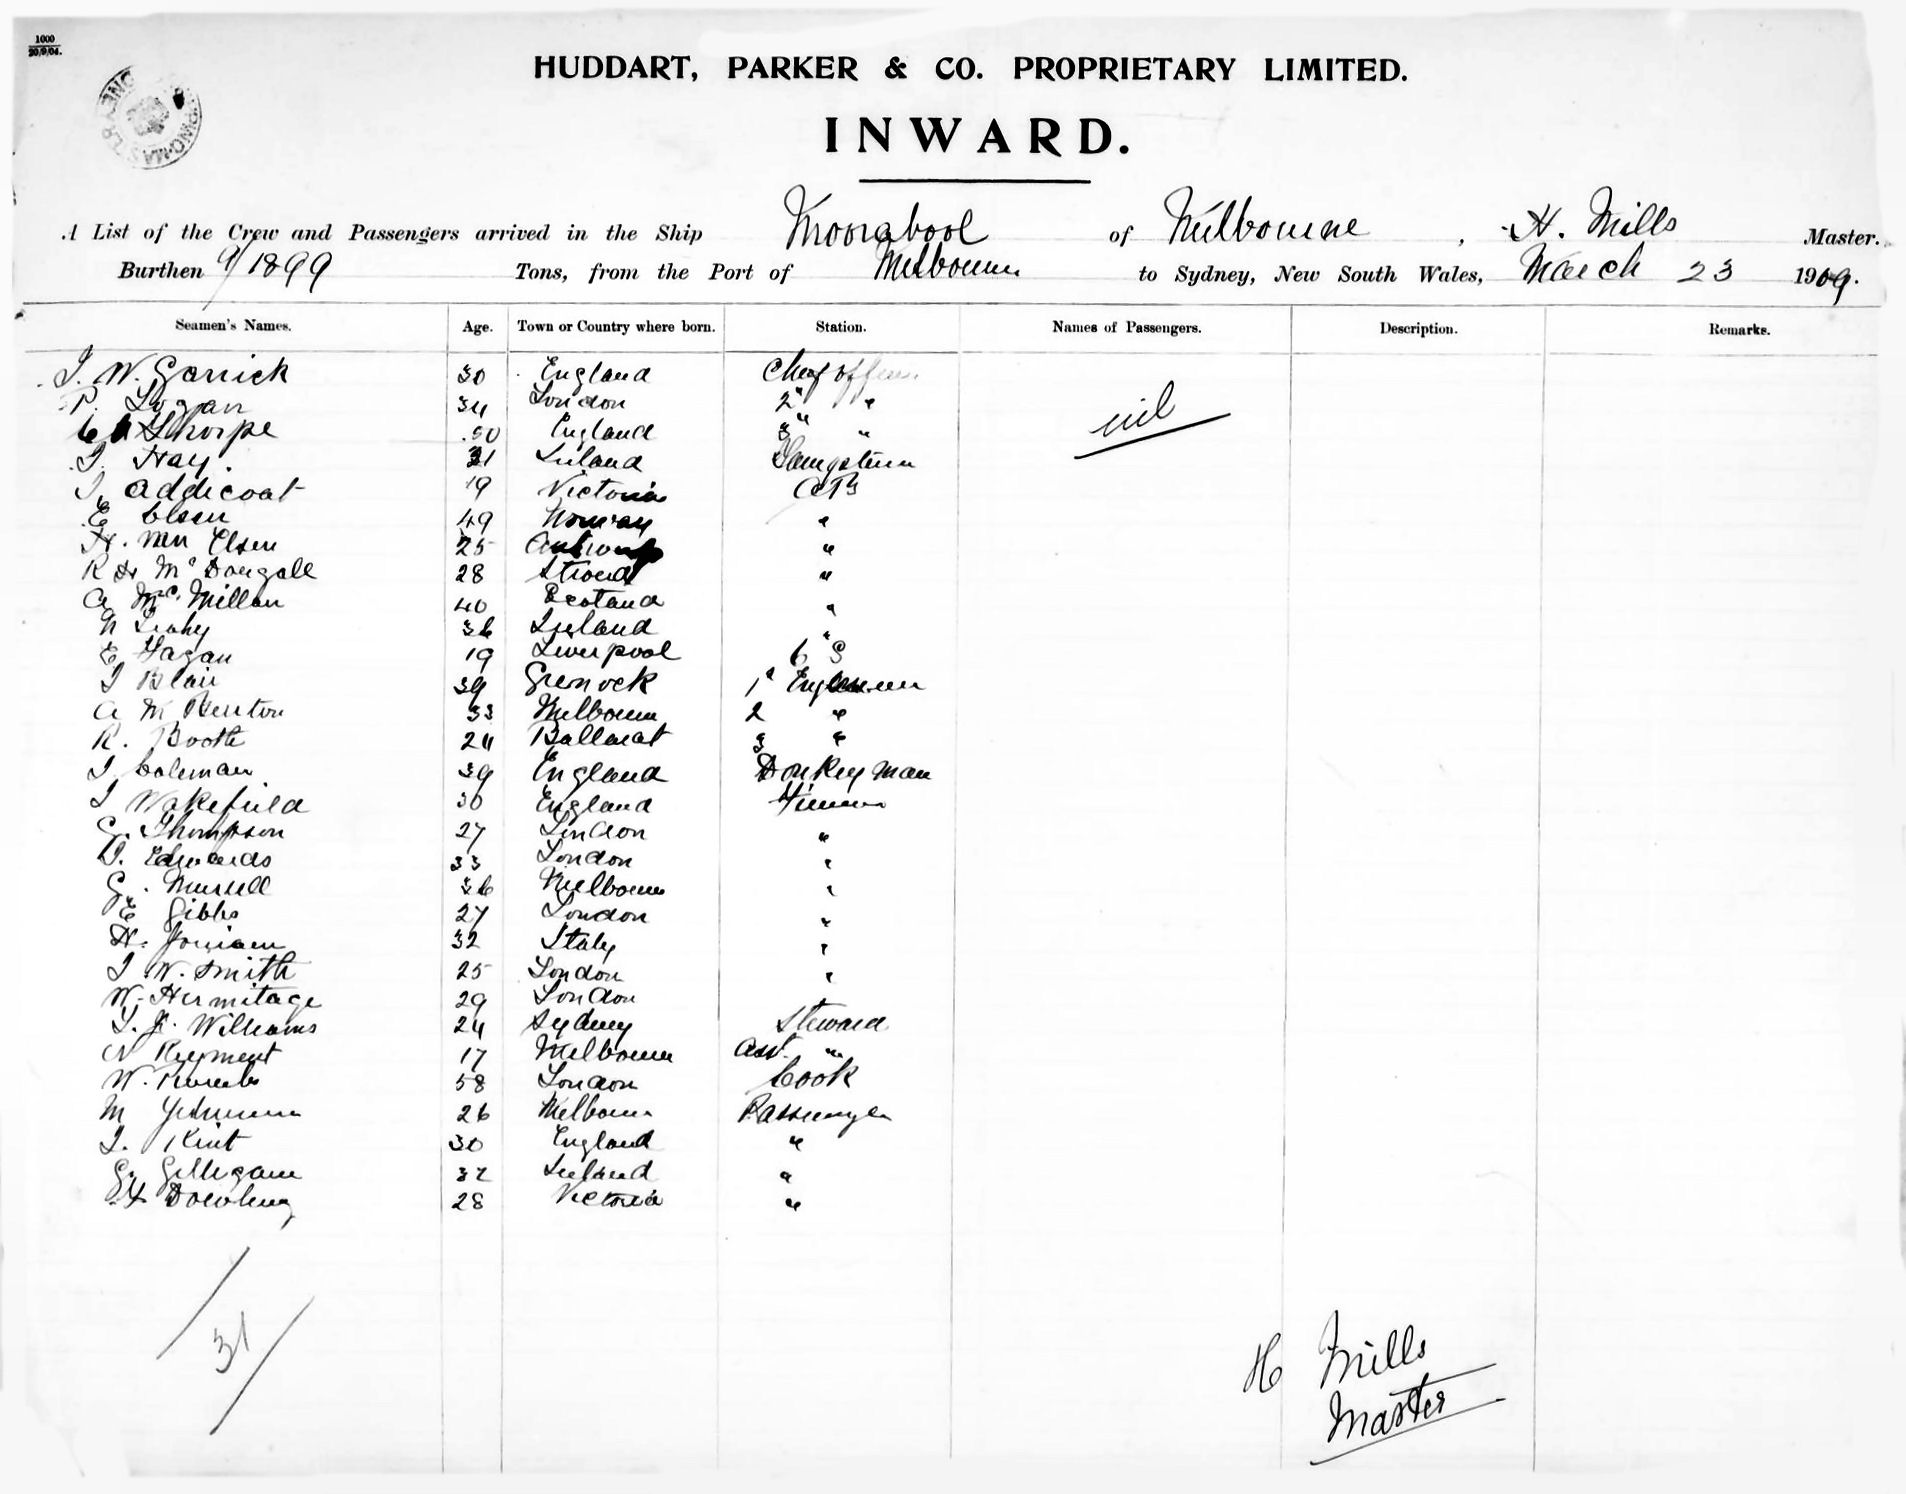 1000
20/9/04.
HUDDART, PARKER & CO. PROPRIETARY LIMITED.
INWARD.
A List of the Crew and Passengers arrived in the Ship Moorabool of Melbourne, H. Mills Master.
Burthen 9/1899 Tons, from the Port of Melbourne to Sydney, New South Wales, March 23 1909.
Seamen's Names. Age. Town or Country where born. Station. Names of Passengers. Description. Remarks.
J. W. Garrick 30 England Chief Officer
P. Logan 34 London 2" " nil
Thorpe 50 England 3" "
Hay. 31 Ireland Lamptrimr
J. Addicoat 19 Victoria AB
E Olsen 49 Norway "
H. Van Elsen 25 Antwerp "
R H McDougall 28 Stroud "
A McMillan 40 Scotland "
N Leahy 36 Ireland "
E Fagan 19 Liverpool O S
J Blair 39 Grenock 1st Engineer
A M Renton 33 Melbourne 2 "
R. Booth 24 Ballarat 3 "
J Coleman 39 England Donkeyman
J Wakefield 30 England Firemen
G. Thompson 27 London "
J. Edwards 33 London "
G. Mussell 36 Melbourne "
E Gibbs 27 London "
H. 32 Italy "
J W. Smith 25 London "
W. Hermitage 29 London
T. J. Williams 24 Sydney Steward
N Rayment 17 Melbourne Asst. "
W. 58 London Cook
M 26 Melbourne Passenger
J. Kent 30 England "
G. Gilligan 32 Ireland "
H Dowling 28 Victoria "
31
H Mills
Master